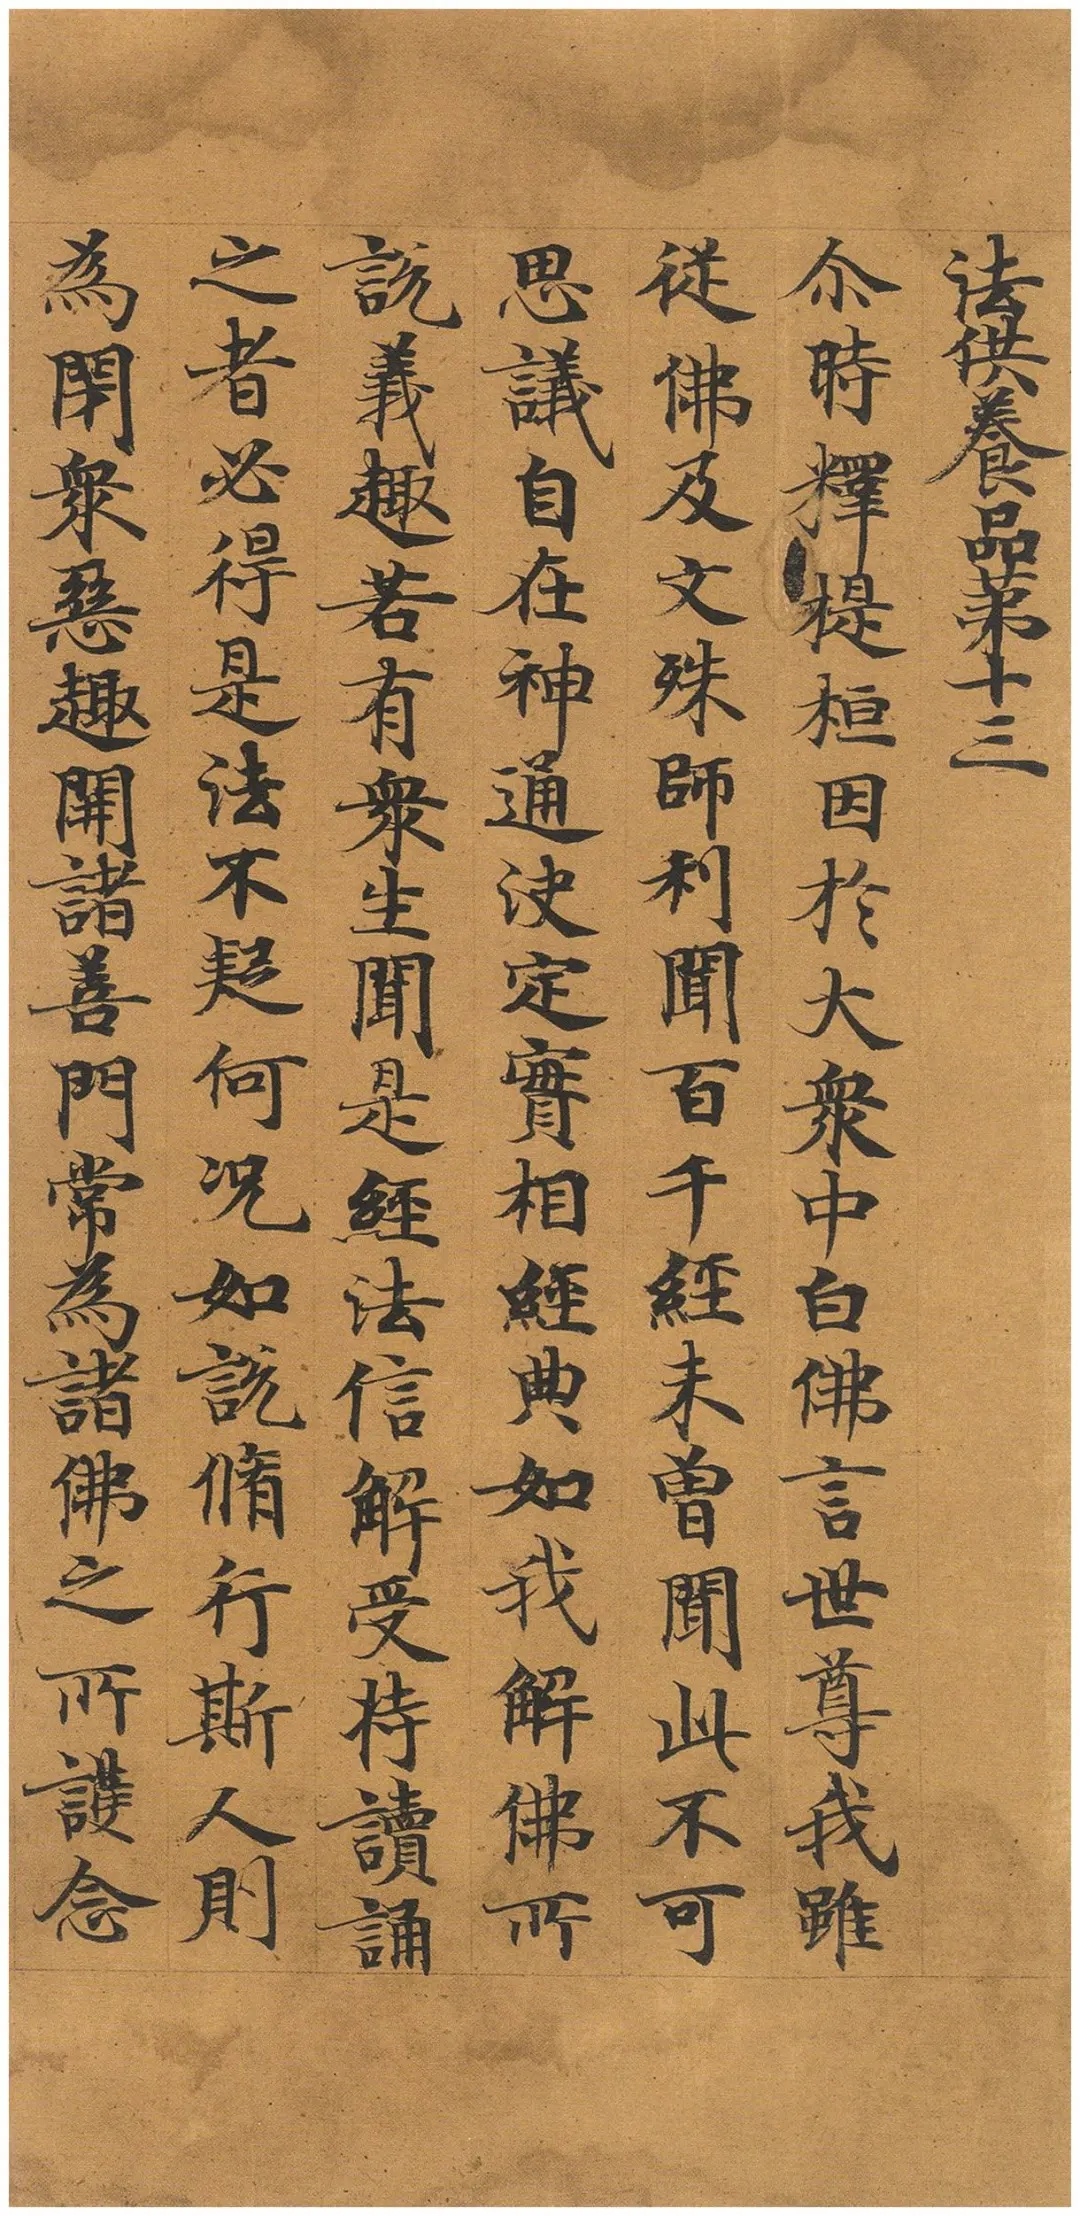 法供養品第十三
尒時釋提桓因於大衆中白佛言世尊我雖
従佛及文殊師利聞百千經未曽聞此不可
思議自在神通決定實相經典如我解佛所
説義趣若有衆生聞是經法信解受持讀誦
之者必得是法不疑何况如説脩行斯人則
為閇衆惡趣開諸善門常為諸佛之所護念